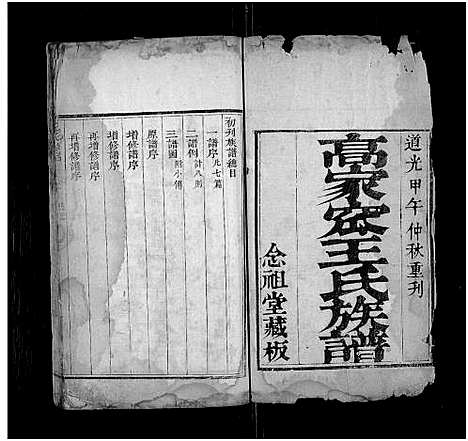 道光甲午仲秋重刊
高家窑王氏族譜
念祖堂藏板
初刊族譜總目
譜序凡七篇
一譜例計八則
三譜圖附小傳
原譜序
增修譜序
增修譜序
再增修譜序
再增修譜序